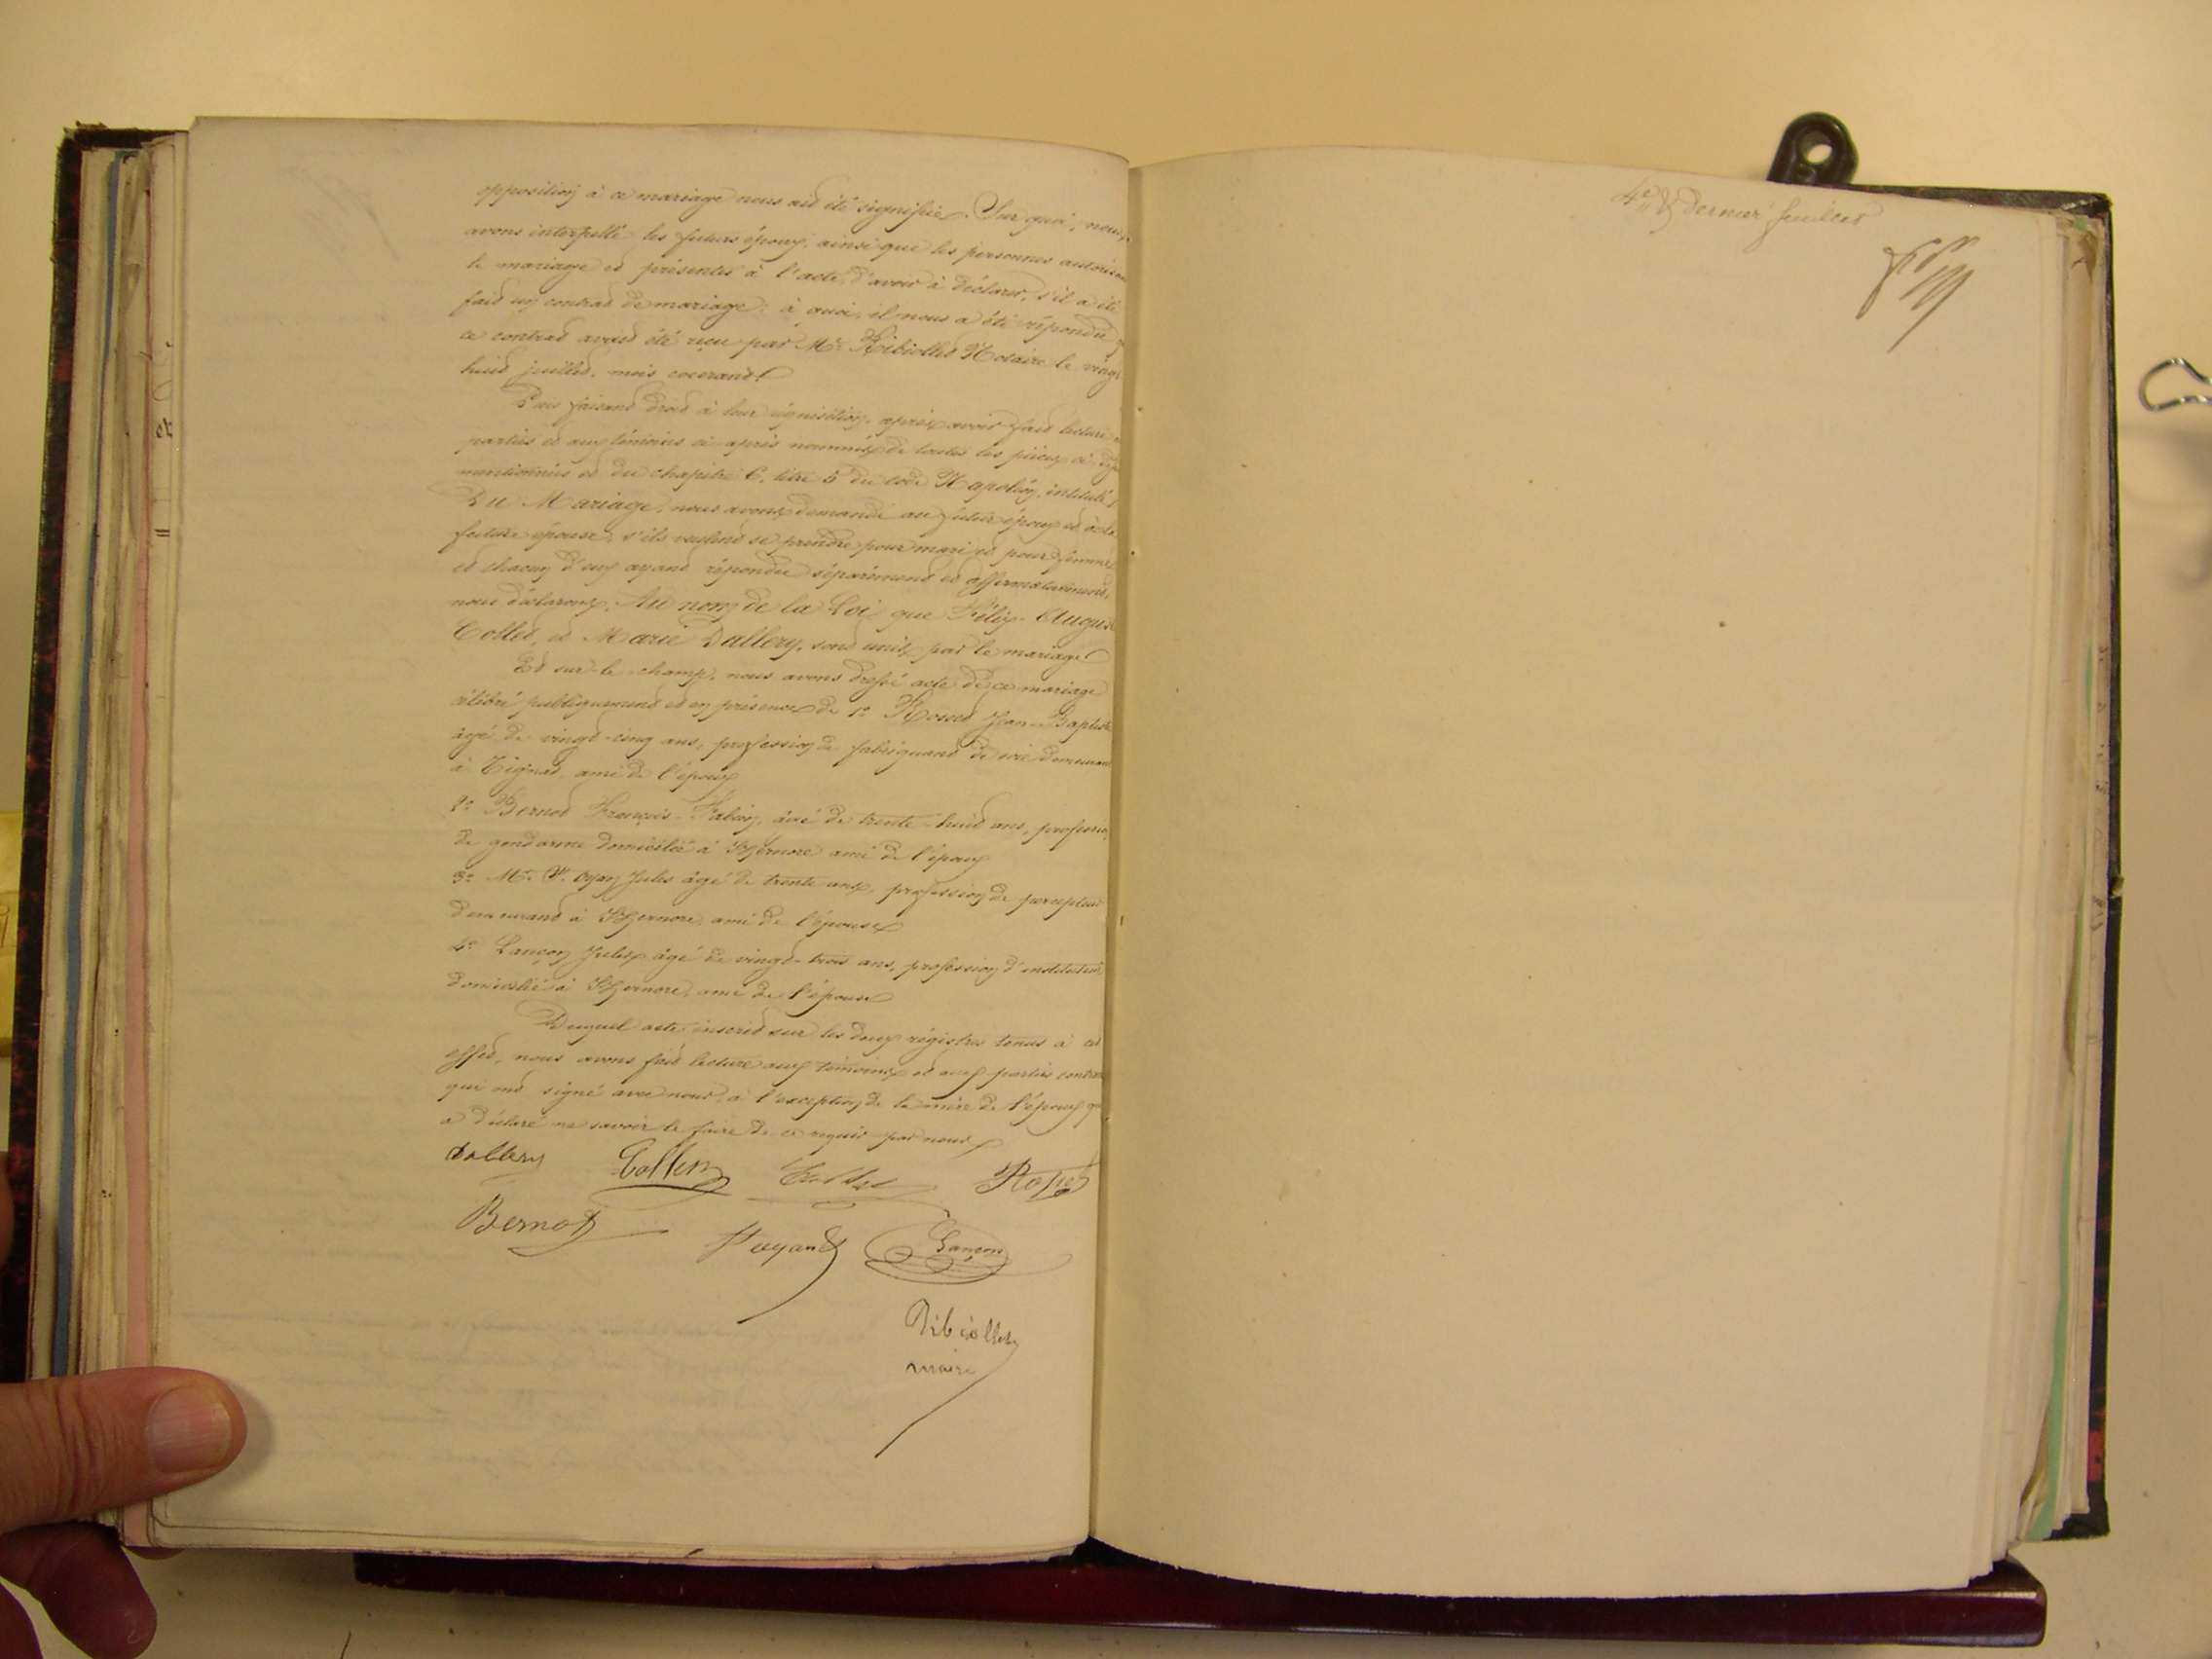 opposition à ce mariage nous ait été signifiée. Sur quoi, nous
avons interpellé les futurs époux, ainsi que les personnes autorisant
le mariage et présentes à l'acte, d'avoir à déclarer, s'il a été
fait un contrat de mariage; à quoi, il nous a été répondu q
ce contrat avait été reçu par Me Ribiollet Notaire le vingt
huit juillet, mois courant.
Puis faisant droit à leur réquisition, après avoir fait lecture
parties et aux témoins ci-après nommés de toutes les pièces ci-d
mentionnées et du chapitre 6, titre 5 du Code Napoléon, intitulé
Du Mariage, nous avons demandé au futur époux et à la
future épouse, s'ils veulent se prendre pour mari et pour femme
et chacun d'eux ayant répondu séparément et affirmativement,
nous déclarons, Au nom de la Loi que Félix-August
Collet, et Marie Dallery, sont unis par le mariage
Et sur-le-champ, nous avons dressé acte de ce mariage
célébré publiquement et en présence de 1° Rosset Jean-Baptiste
âgé de vingt-cinq ans, profession de fabriquant de soie demeurant
à Tignat, ami de l'époux
2° Bernod François-Fabien, âgé de trente-huit ans, profession
de gendarme domicilié à Thernore ami de l'époux
3° Mr Jules âgé de trente ans, profession de percepteur
demeurant à Thernore, ami de l'épouse
4° Lançon Jules âgé de vingt-trois ans, profession d'instituteur
domicilié à Thernore, ami de l'épouse
Duquel acte, inscrit sur les deux régistres tenus à cet
effet, nous avons fait lecture aux témoins et aux parties contract
qui ont signé avec nous, à l'exception de la mère de l'époux qui
a déclaré ne savoir le faire de ce requis par nous
Dallery Collet Rosset
Bernod Lançon
Ribiollet
maire
4e & dernier feuillet